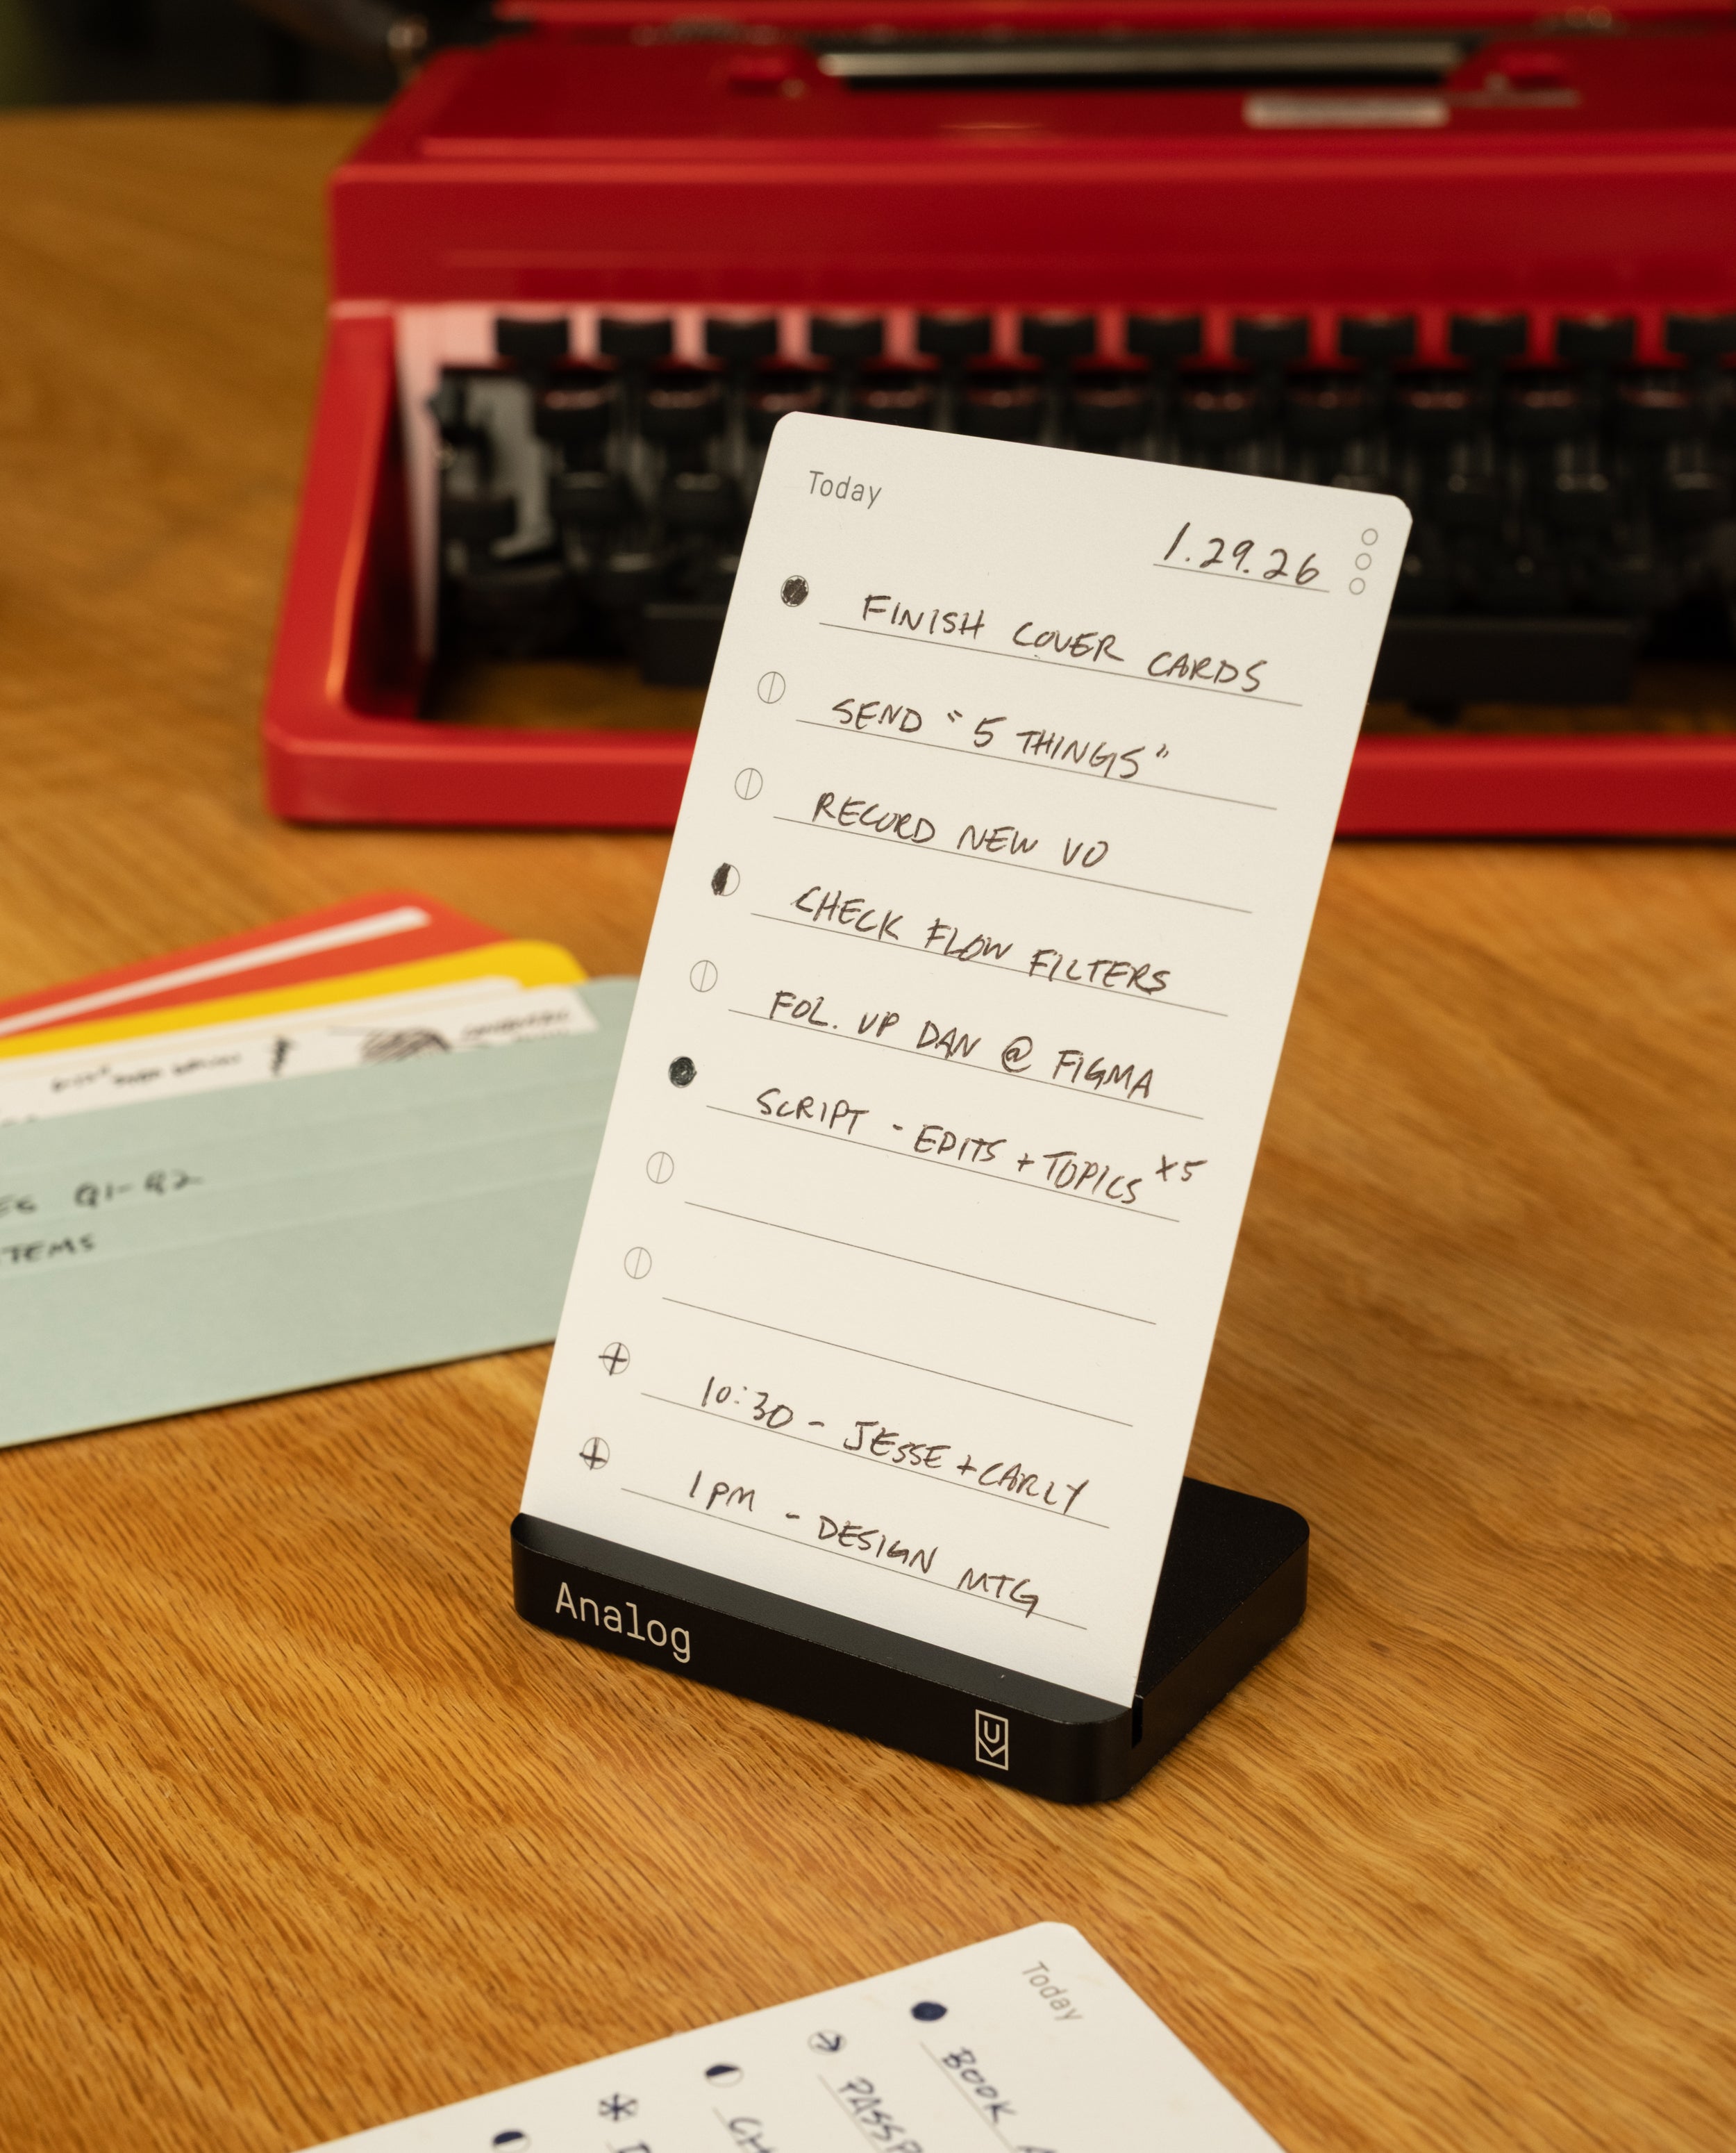 Today
1.29.26
FINISH COVER CARDS
SEND "5 THINGS"
RECORD NEW VO
CHECK FLOW FILTERS
FOL. UP DAN @ FIGMA
SCRIPT - EDITS + TOPICS x5
10:30 - JESSE + CARLY
1 PM - DESIGN MTG
Analog
Q1-Q2
Today
BOOK